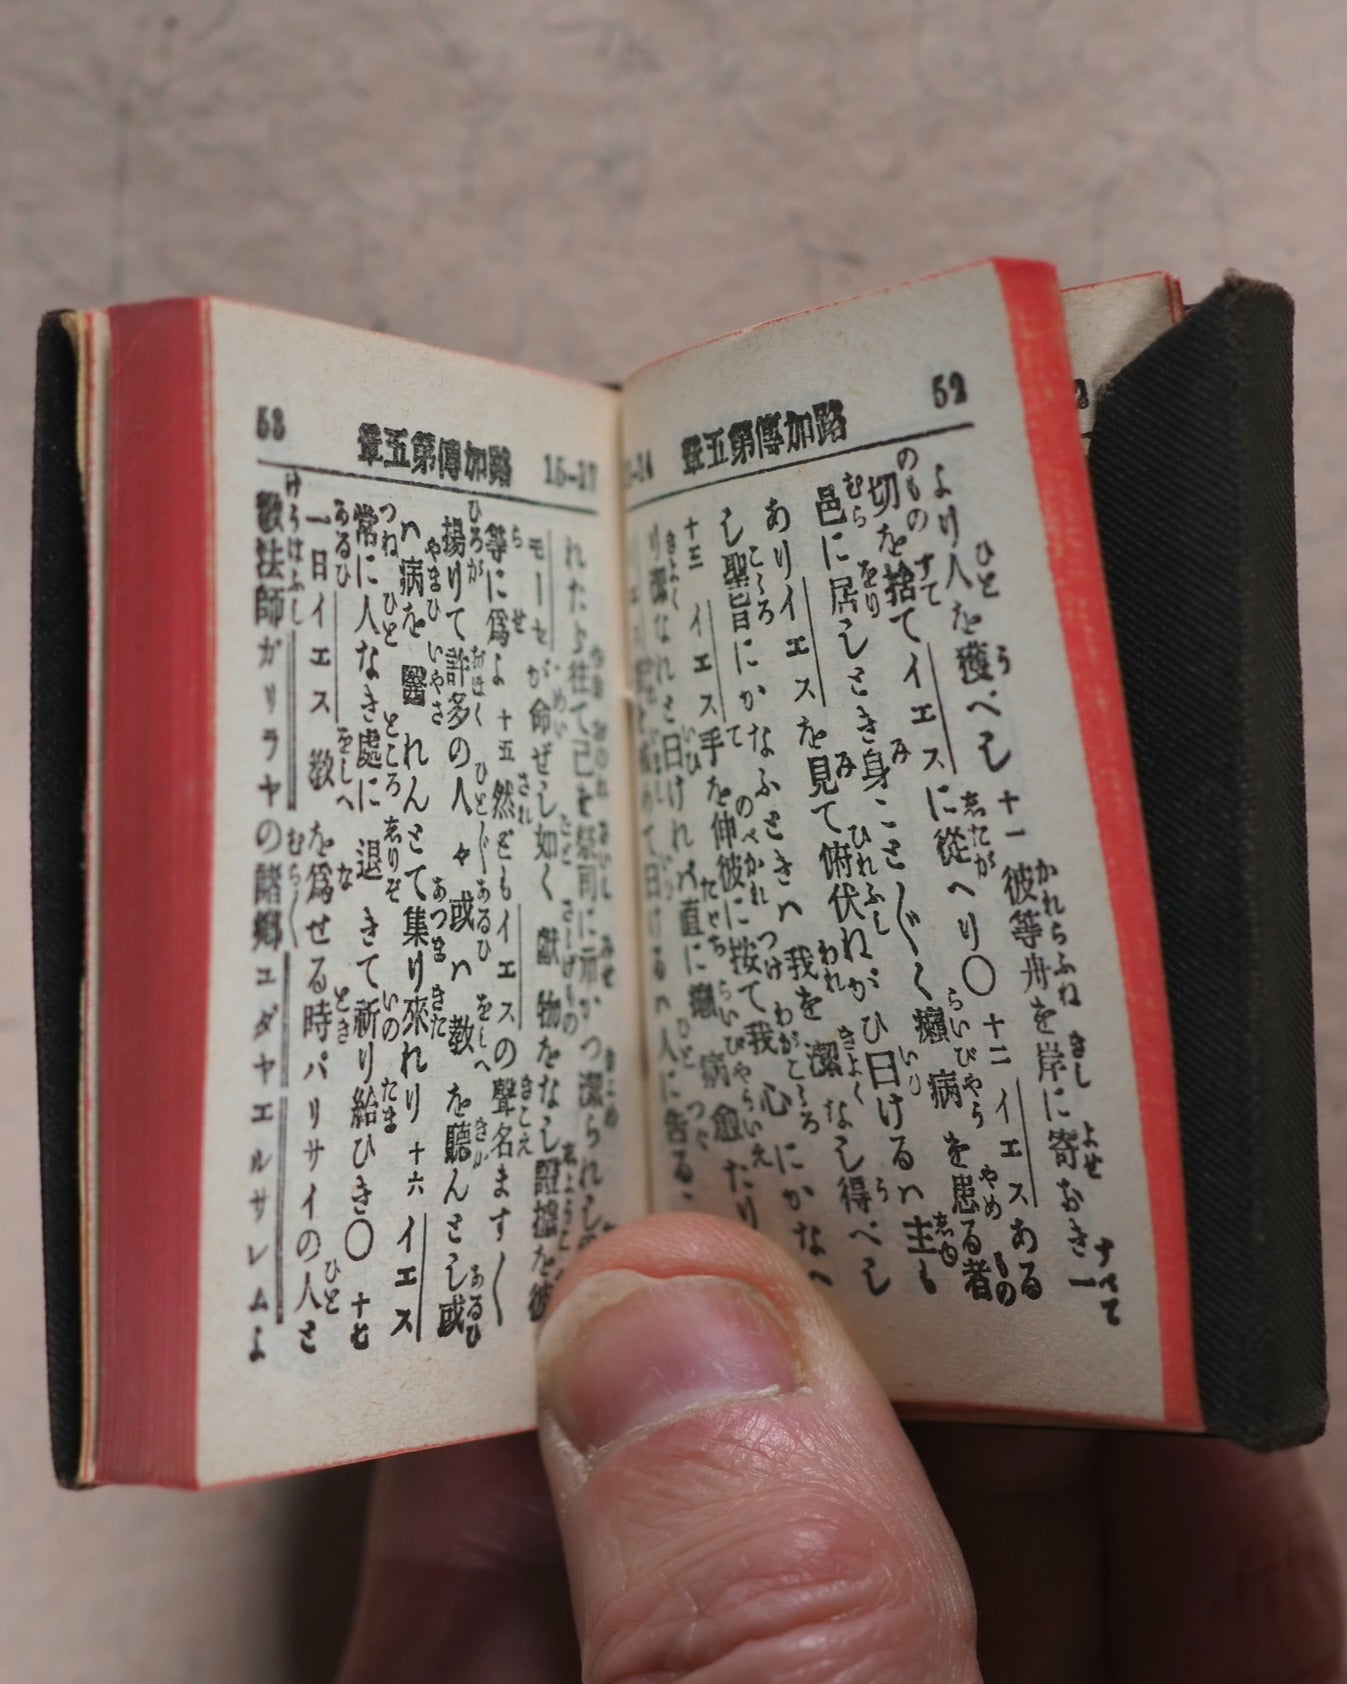 52
路加傳第五章
より人を獲べし 十一 彼等舟を岸に寄おき一
切を捨てイエスに從へり〇 十二 イエスある
邑に居しとき身こと〲く癩病を患る者
ありイエスを見て俯伏ねがひ曰けるハ主も
し聖旨にかなふときハ我を潔なし得べし
十三 イエス手を伸彼に按て我心にかなへ
り潔なれと曰けれバ直に癩病愈たり
53
路加傳第五章
15-17
れたゞ往て己を祭司に示かつ潔られし
モーセが命ぜし如く獻物をなし證據を彼
等に爲よ 十五 然どもイエスの聲名ます〱
揚りて許多の人々或ハ教を聽んとし或
ハ病を醫れんとて集り來れり 十六 イエス
常に人なき處に退きて祈り給ひき〇 十七
一日イエス教を爲せる時パリサイの人と
教法師ガリラヤの諸鄉ユダヤエルサレムよ